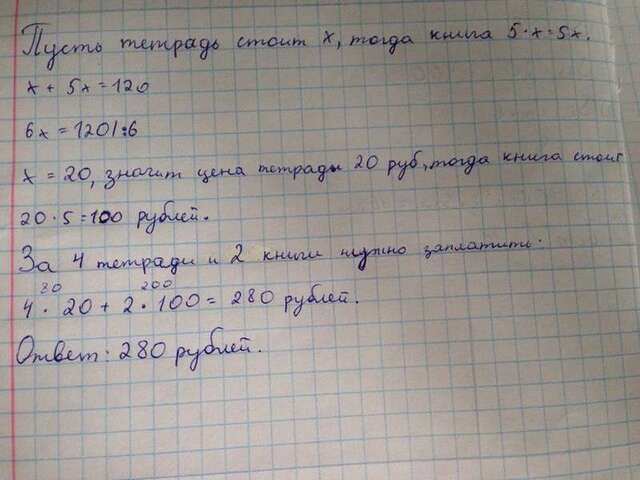 Пусть тетрадь стоит x, тогда книга 5·x=5x.
x + 5x = 120
6x = 120/:6
x = 20, значит цена тетради 20 руб, тогда книга стоит
20·5=100 рублей.
За 4 тетради и 2 книги нужно заплатить:
80 200
4·20+2·100=280 рублей.
Ответ: 280 рублей.